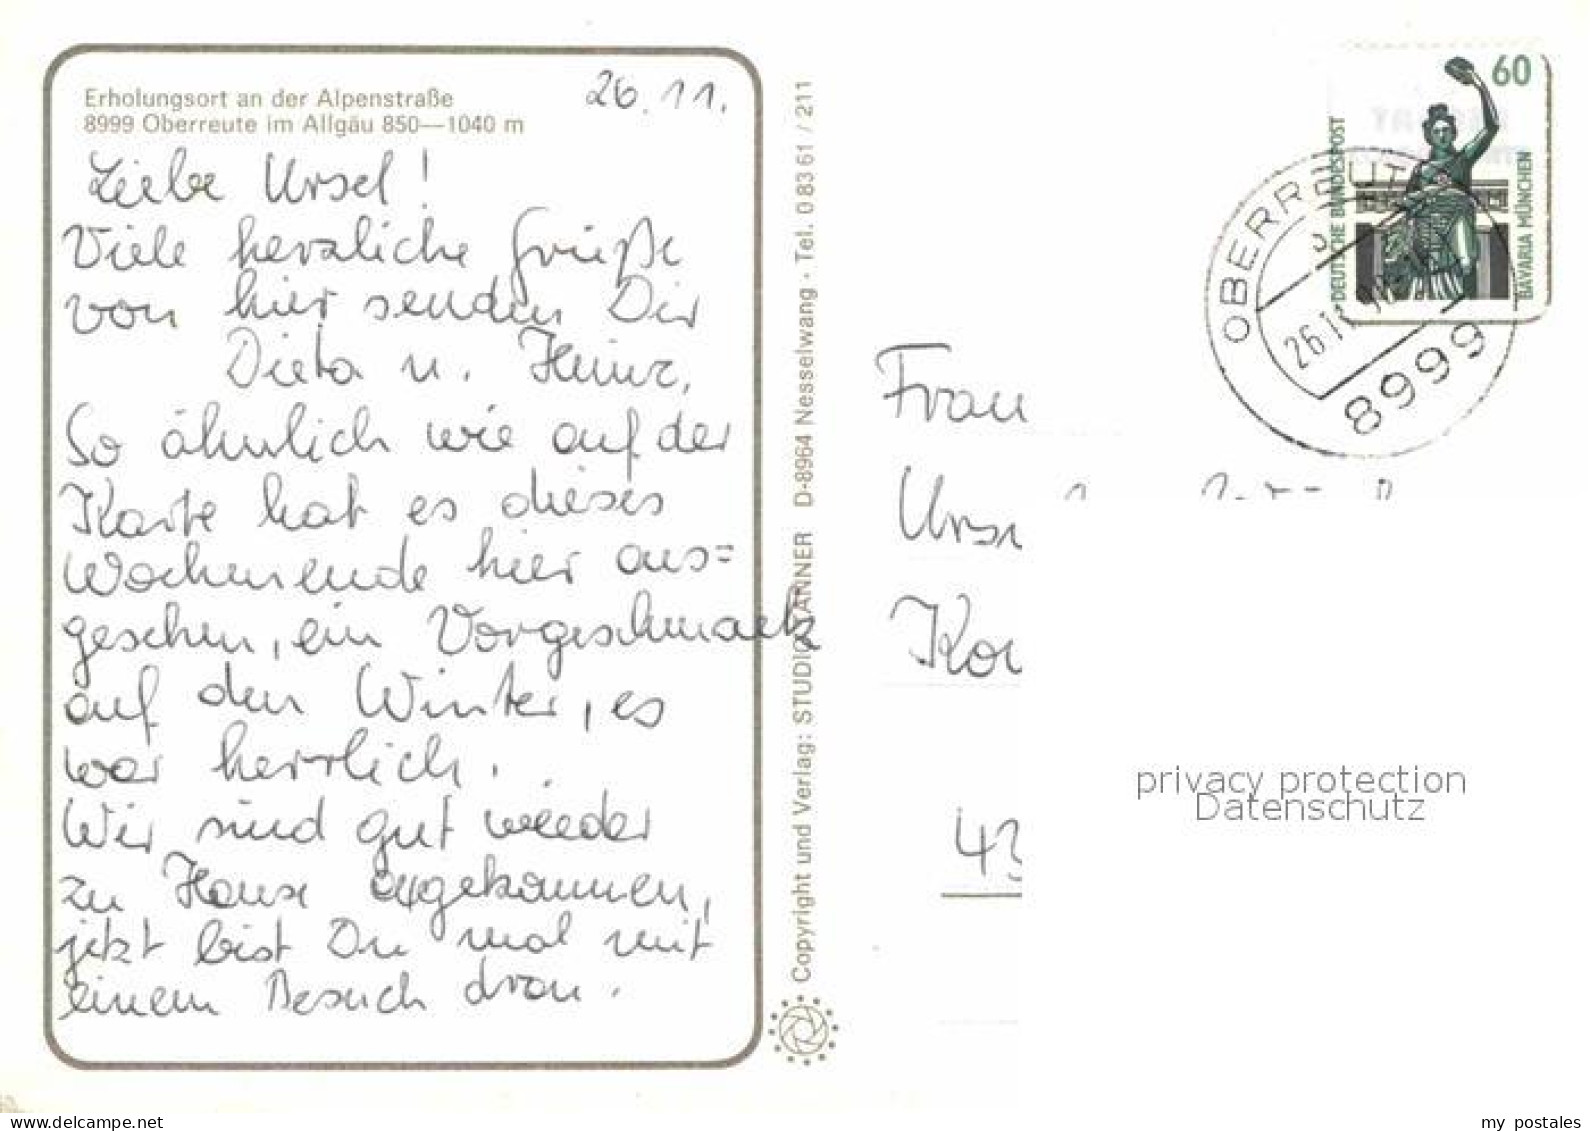 Erholungsort an der Alpenstraße
8999 Oberreute im Allgäu 850—1040 m
26.11.
Liebe Ursel!
Viele herzliche Grüße
von hier senden Dir
Dieta u. Heinz.
So ähnlich wie auf der
Karte hat es dieses
Wochenende hier aus=
gesehen, ein Vorgeschmack
auf den Winter, es
war herrlich.
Wir sind gut wieder
zu Hause angekommen,
jetzt bist Du mal mit
einem Besuch dran.
Copyright und Verlag: STUDIO TANNER D-8964 Nesselwang · Tel. 0 83 61 / 211
60
DEUTSCHE BUNDESPOST
BAVARIA MÜNCHEN
OBERREUTE
26.11.
8999
Frau
Urse
Ko
43
privacy protection
Datenschutz
my postales